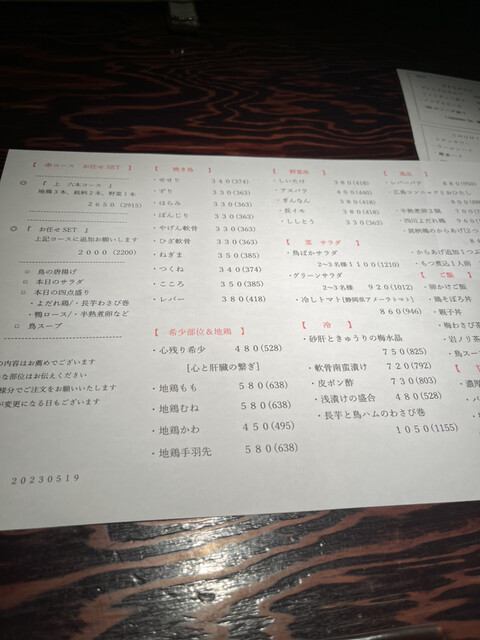 お任せ SET 】
◎ 【 上 六本コース 』
地鶏3本、銘柄2本、野菜1本
2650(2915)
◎ 『 お任せSET 』
上記コースに追加お願いします
2000 (2200)
○ 鳥の唐揚げ
○ 本日のサラダ
○ 本日の四点盛り
・よだれ鶏/・長芋わさび巻
・鴨ロース/・半熟煮卵など
○ 鳥スープ
の内容はお薦めでございます
な部位はお伝えください
様分でご注文をお願いいたします
が変更になる日もございます
20230519
【 焼き鳥 】
・せせり 340(374)
・ずり 330(363)
・はらみ 330(363)
・ぼんじり 330(363)
・やげん軟骨 330(363)
・ひざ軟骨 330(363)
・ねぎま 350(385)
・つくね 340(374)
・こころ 350(385)
・レバー 380(418)
【 希少部位＆地鶏 】
・心残り希少 480(528)
[心と肝臓の繋ぎ]
・地鶏もも 580(638)
・地鶏むね 580(638)
・地鶏かわ 450(495)
・地鶏手羽先 580(638)
【 野菜串 】
・しいたけ 380(418)
・アスパラ 400(440)
・ぎんなん 380(418)
・長イモ 380(418)
・ししとう 330(363)
【 菜 サラダ 】
・鳥ばかサラダ
2〜3名様 1100(1210)
・グリーンサラダ
2〜3名様 920(1012)
・冷しトマト[静岡県アメーラトマト]
860(946)
【 冷 】
・砂肝ときゅうりの梅水晶
750(825)
・軟骨南蛮漬け 720(792)
・皮ポン酢 730(803)
・浅漬けの盛合 480(528)
・長芋と鳥ハムのわさび巻
1050(1155)
・レバーパテ
・半熟煮卵2個
・四川よだれ鶏
からあげ追加1つ
・もつ煮込1人前
【 ご飯
・卵かけご飯
・鶏そぼろ丼
・親子丼
・梅わさび茶
・岩ノリ茶
・鳥スープ